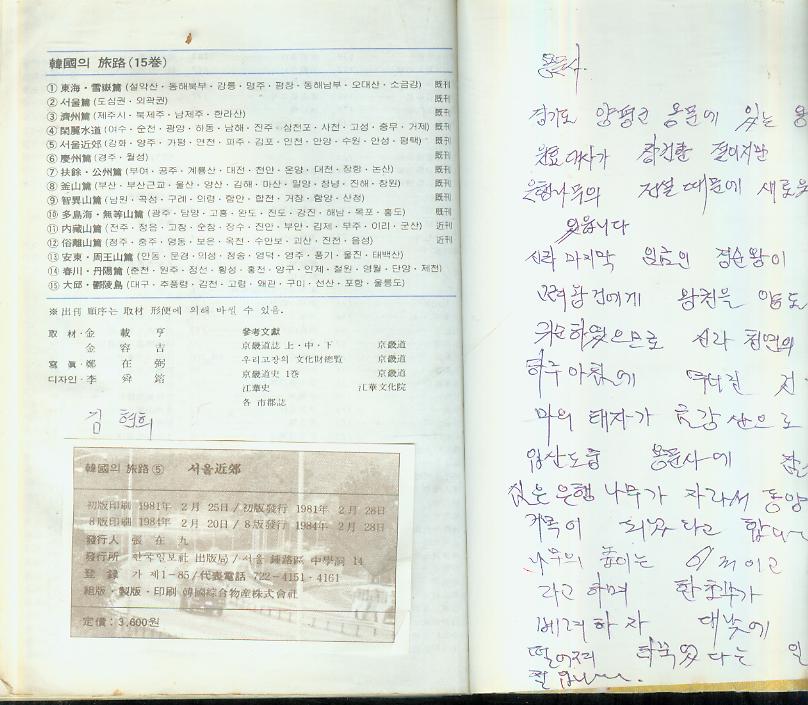 韓國의 旅路(15巻)
① 東海·雪嶽篇 (설악산·동해북부·강릉·명주·평창·동해남부·오대산·소금강) 既刊
② 서울篇 (도심권·외곽권) 既刊
③ 濟州篇 (제주시·북제주·남제주·한라산) 既刊
④ 閑麗水道 (여수·순천·광양·하동·남해·진주·삼천포·사천·고성·충무·거제) 既刊
⑤ 서울近郊 (강화·양주·가평·연천·파주·김포·인천·안양·수원·안성·평택) 既刊
⑥ 慶州篇 (경주·월성) 既刊
⑦ 扶餘·公州篇 (부여·공주·계룡산·대전·천안·온양·대천·장항·논산) 既刊
⑧ 釜山篇 (부산·부산근교·울산·양산·김해·마산·밀양·창녕·진해·창원) 既刊
⑨ 智異山篇 (남원·곡성·구례·의령·함안·합천·거창·함양·산청) 既刊
⑩ 多島海·無等山篇 (광주·담양·고흥·완도·진도·강진·해남·목포·홍도) 既刊
⑪ 内藏山篇 (전주·정읍·고창·순창·장수·진안·부안·김제·무주·이리·군산) 近刊
⑫ 俗離山篇 (청주·충주·영동·보은·옥천·수안보·괴산·진천·음성) 近刊
⑬ 安東·周王山篇 (안동·문경·의성·청송·영덕·영주·풍기·울진·태백산)
⑭ 春川·丹陽篇 (춘천·원주·정선·횡성·홍천·양구·인제·철원·영월·단양·제천)
⑮ 大邱·鬱陵島 (대구·추풍령·김천·고령·왜관·구미·선산·포항·울릉도)
※ 出刊 順序는 取材 形便에 의해 바뀔 수 있음.
取 材·金 載 亨
金 容 吉
寫 眞·鄭 在 弼
디자인·李 舜 鎔
參考文獻
京畿道誌 上·中·下 京畿道
우리고장의 文化財總覧 京畿道
京畿道史 1巻 京畿道
江華史 江華文化院
各 市郡誌
김 현희
韓國의 旅路 ⑤ 서울近郊
初版印刷 1981年 2月 25日/初版發行 1981年 2月 28日
8版印刷 1984年 2月 20日/8版發行 1984年 2月 28日
發行人 張 在 九
發行所 한국일보社 出版局/서울 鍾路區 中學洞 14
登 錄 가 제1-85/代表電話 722-4151·4161
組版·製版·印刷 韓國綜合物產株式會社
定價: 3,600원
용문사.
경기도 양평군 용문에 있는 용
원효대사가 창건한 절이지만
은행나무의 전설 때문에 새로운
있읍니다
신라 마지막 임금인 경순왕이
고려 왕건에게 왕권을 양도
귀순하였으므로 신라 천연의
하루 아침에
마의 태자가 금강산으로
입산도중 용문사에
은행나무가 자라서 동양
거목이 되었다고 합니다
나무의 높이는 61척이고
라고 하며
베려하자 대낮에
떨어져 다는